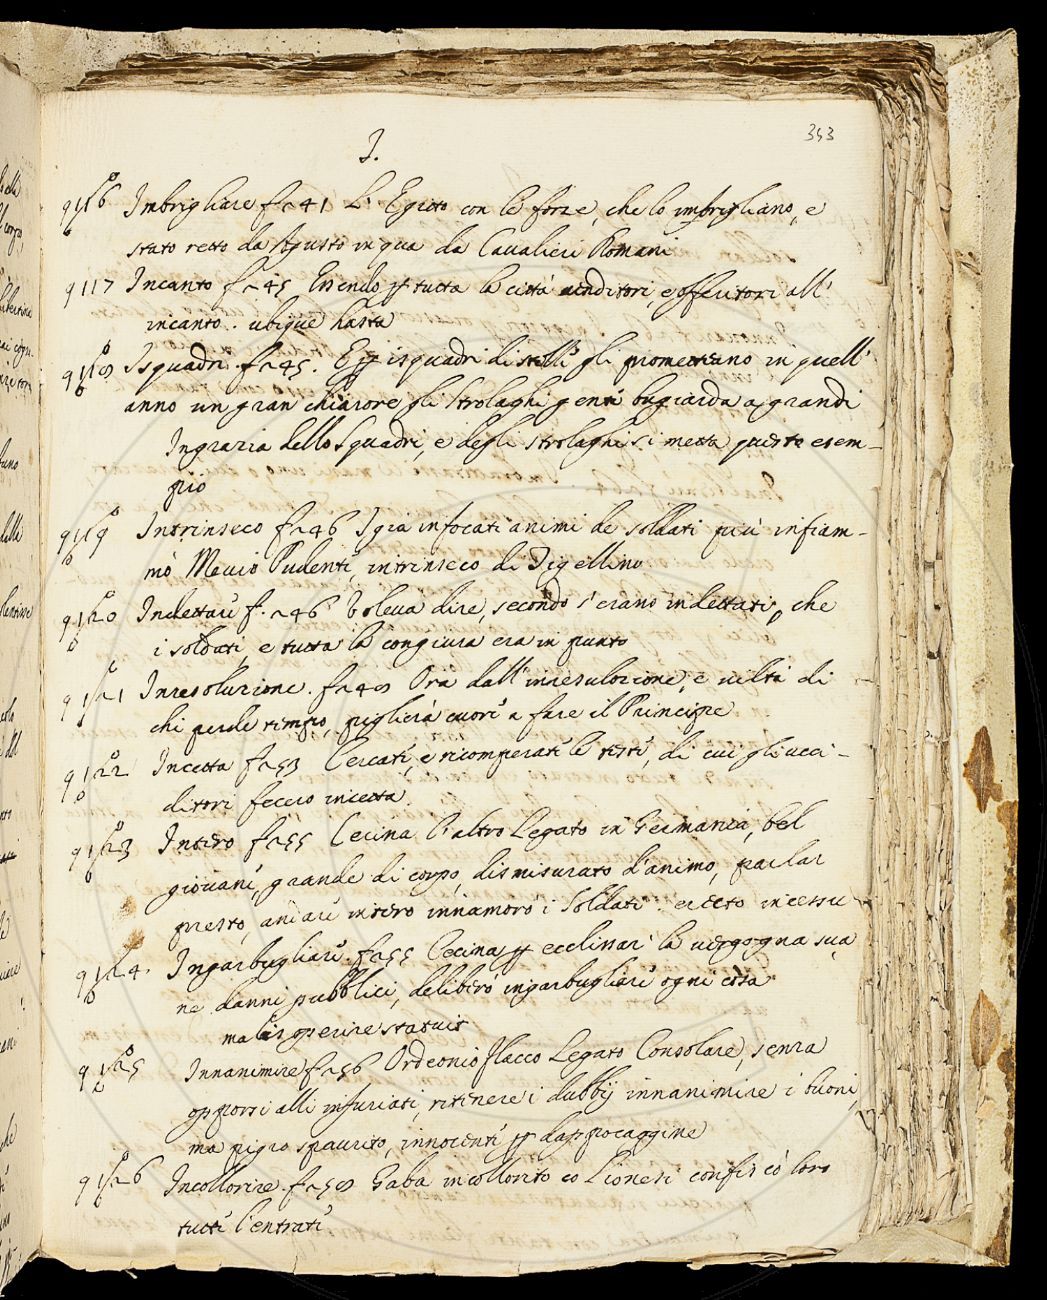 353
I.
9116 Imbrigliare f. 241 L'Egitto con le forze, che lo imbrigliano, e
stato retto da Agusto in qua da Cavalieri Romani
9117 Incanto f. 245 Essendo p tutta la città venditori, e offeritori all'
incanto. ubique hasta
9118 Isquadri. f. 245. E p isquadri di stelle gli promettevano in quell'
anno un gran chiarore gli strolaghi gente bugiarda a grandi
In grazia dello Squadri, e degli strolaghi si metta questo esem-
pio
9119 Intrinseco f. 246 I già infocati animi de soldati più infiam-
mò Mevio Pudente, intrinseco di Tigellino
9120 Indettare f. 246 Voleva dire, secondo s'erano indettati, che
i soldati e tutta la congiura era in punto
9121 Inresoluzione. f. 248 Ora dall'inresoluzione, e viltà di
chi perde tempo, piglierà cuore a fare il Principe
9122 Incetta f. 253 Cercati, e ricomperati le teste, di cui gli ucci-
ditori feccro incetta.
9123 Intero f. 255 Cecina l'altro Legato in Germania, bel
giovane, grande di corpo, dismisurato d'animo, parlar
presto, andare intero innamorò i Soldati. erecto incessu
9124. Ingarbugliare. f. 255 Cecina p ecclissar la vergogna sua
ne danni pubblici, deliberò ingarbugliare ogni cosa
miscere statuit
9125 Innanimire f. 256 Ordeonio Flacco Legato Consolare, senza
opporsi alli infuriati, ritenere i dubbij innanimire i buoni,
ma pigro spaurito, innocente p dappocaggine
9126 Incollorire. f. 258 Gaba incollorito co Lionesi confiscò loro
tutte l'entrate